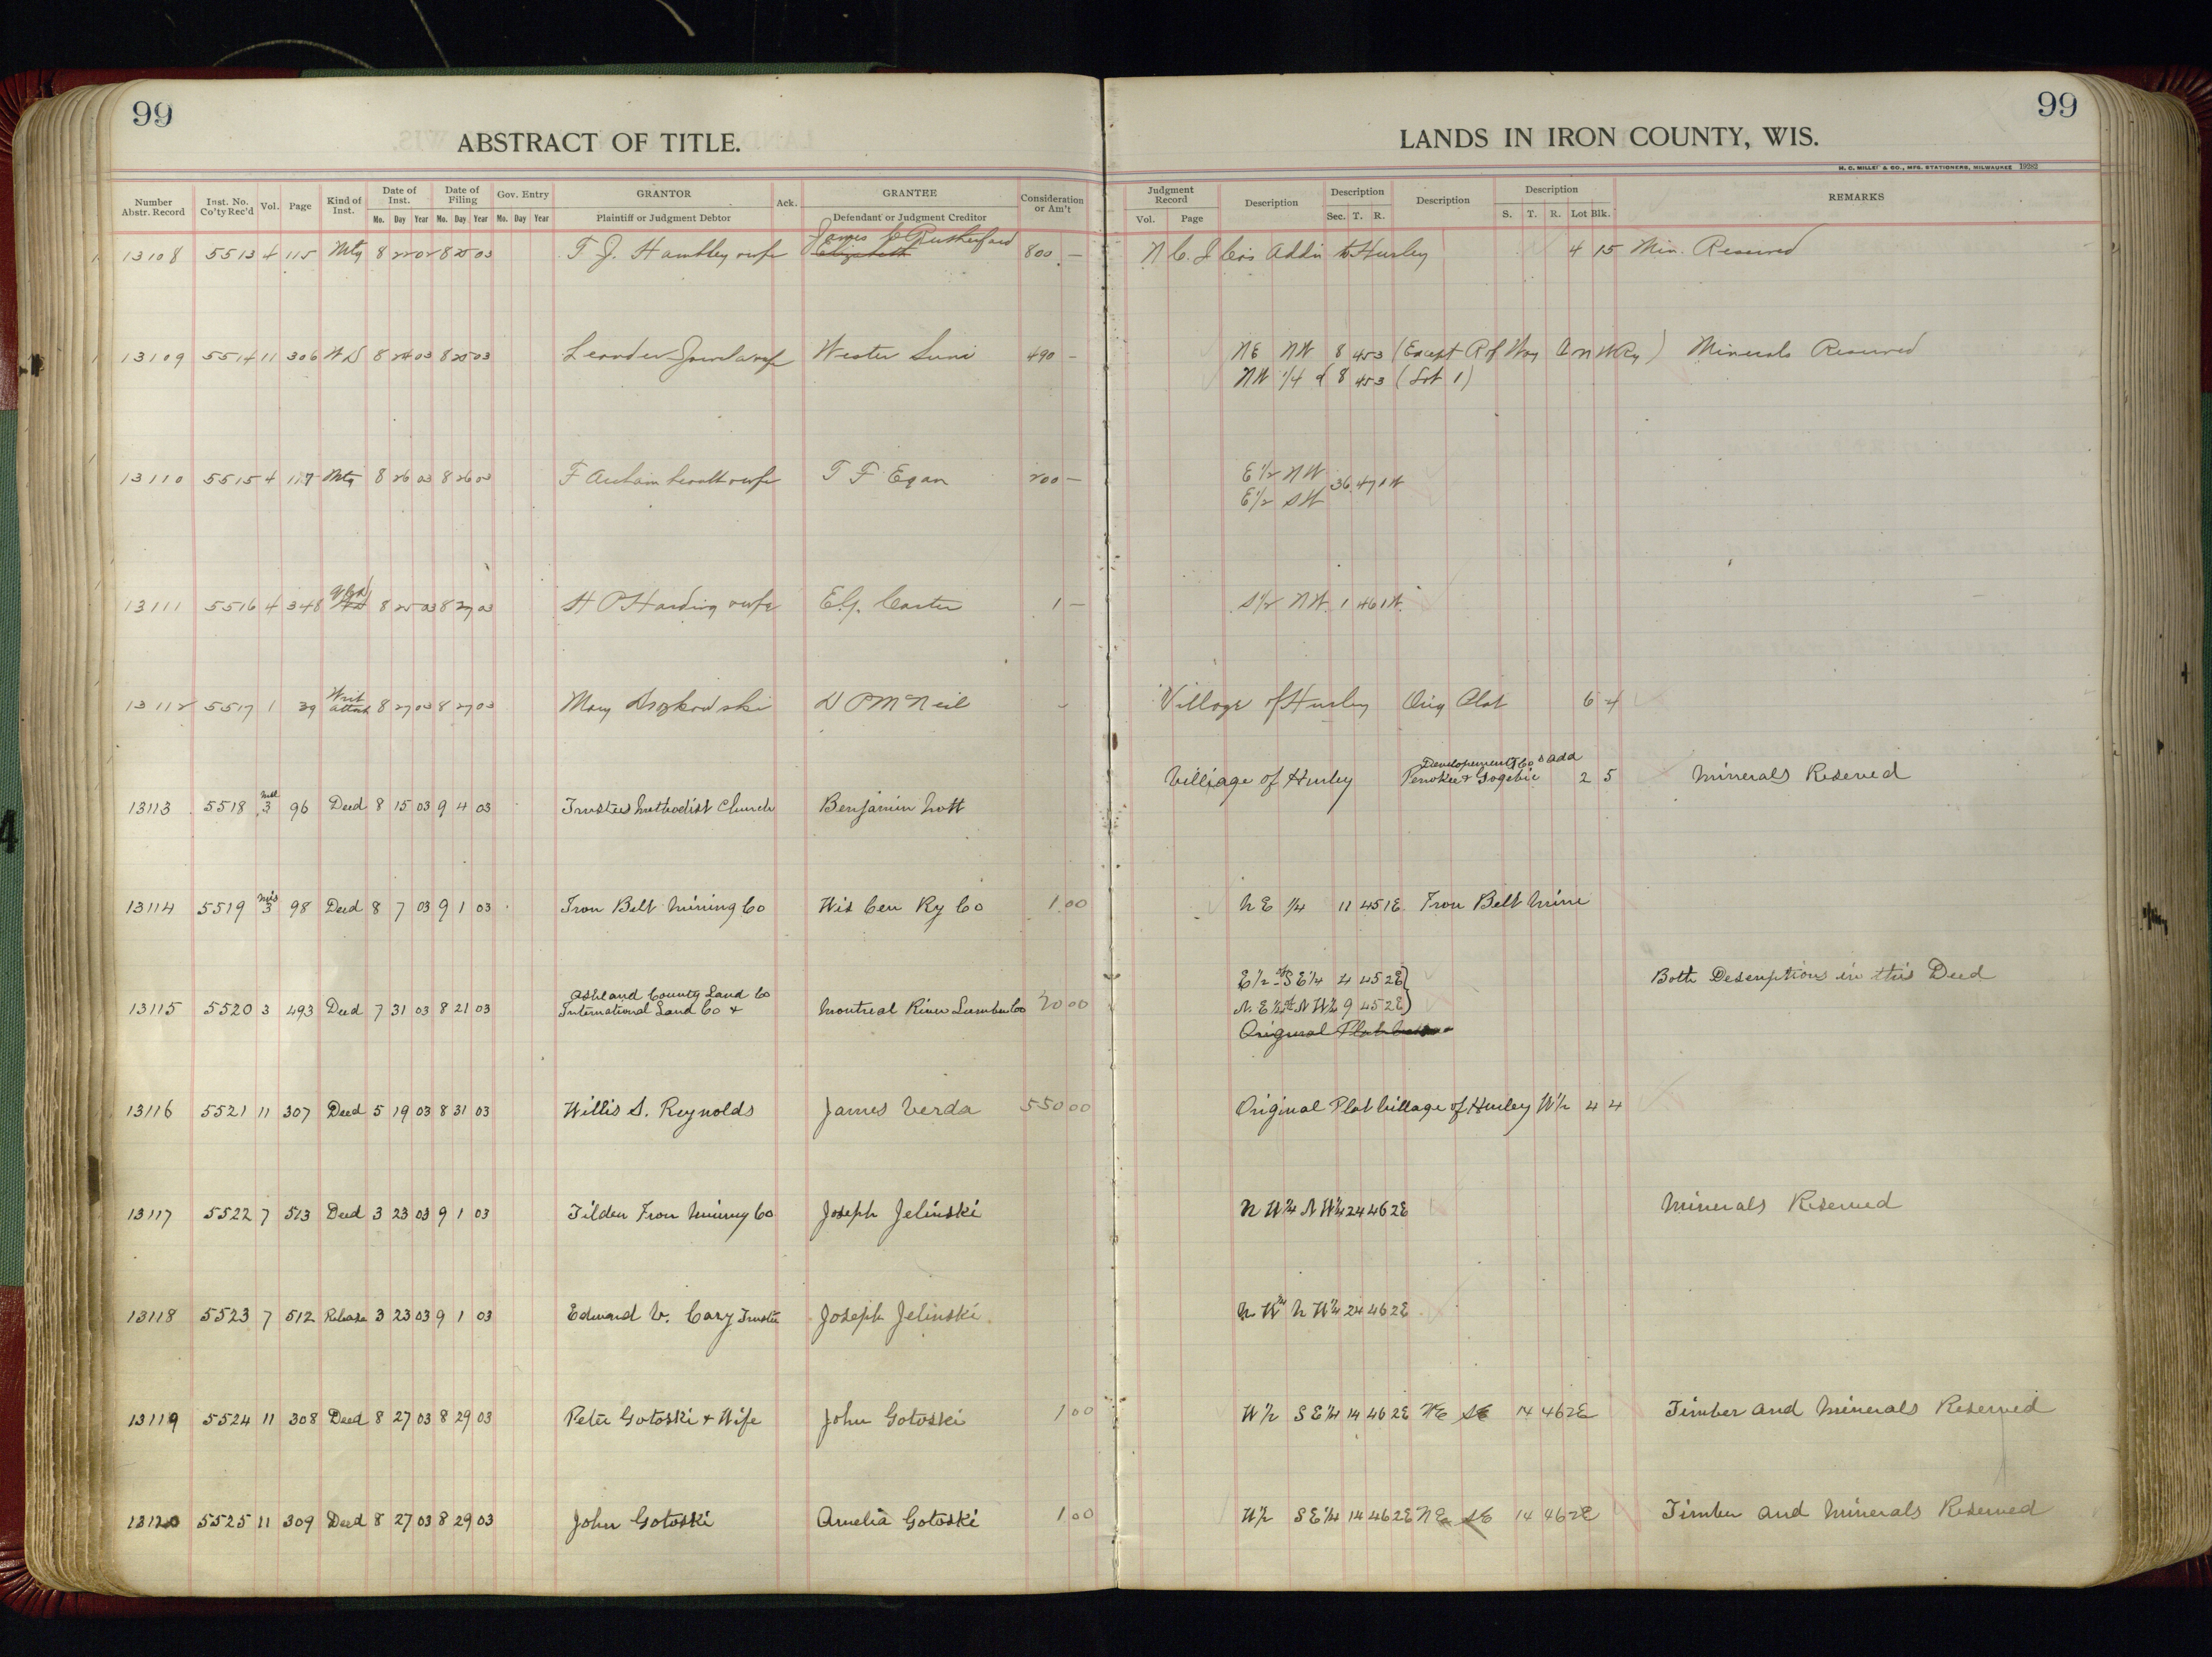 99
99
ABSTRACT OF TITLE.
LANDS IN IRON COUNTY, WIS.
H. C. MILLER & CO., MFG. STATIONERS, MILWAUKEE 19282
Number Abstr. Record Inst. No. Co'ty Rec'd Vol. Page Kind of Inst. Date of Inst. Mo. Day Year Date of Filing Mo. Day Year Gov. Entry Mo. Day Year GRANTOR Plaintiff or Judgment Debtor Ack. GRANTEE Defendant or Judgment Creditor Consideration or Am't
Judgment Record Vol. Page Description Description Sec. T. R. Description Description S. T. R. Lot Blk. REMARKS
James C Rutherford
13108 5513 4 115 Mtg 8 22 02 8 25 03 T. J. Hambley & wife 800 — N C. I Co's Addn to Hurley 4 15 Min. Reserved
13109 5514 11 306 WD 8 24 03 8 25 03 Leander & wife Wester 490 — NE NW 8 45 3 (Except R of Way C N W Ry) Minerals Reserved
NW 1/4 of 8 45 3 (Lot 1)
13110 5515 4 117 Mtg 8 26 03 8 26 03 F & wife T F Egan 200 — E 1/2 NW
E 1/2 SW 36 47 1W
13111 5516 4 348 QCD 8 25 03 8 27 03 H P Harding & wife E.G. Carter 1 — S 1/2 NW. 1 46 1W.
13112 5517 1 39 Writ attach 8 27 03 8 27 03 Mary D P McNeil — Village of Hurley Orig Plat 6 4
13113 5518 Misl 3 96 Deed 8 15 03 9 4 03 Trustees Methodist Church Benjamin Mott Villiage of Hurley Penokee & Gogebic Developement Co's add 2 5 Minerals Reserved
13114 5519 Mis 3 98 Deed 8 7 03 9 1 03 Iron Belt Mining Co Wis Cen Ry Co 1.00 N E 1/4 11 45 1E Iron Belt Mine
Ashland County Land Co E 1/2 of S E 1/4 4 45 2E} Both Descriptions in this Deed
13115 5520 3 493 Deed 7 31 03 8 21 03 International Land Co & Montreal River Lumber Co 20 00 N. E 1/4 of N W 1/4 9 45 2E}
Original Plat
13116 5521 11 307 Deed 5 19 03 8 31 03 Willis S. Reynolds James Verda 550 00 Original Plat Village of Hurley W 1/2 4 4
13117 5522 7 513 Deed 3 23 03 9 1 03 Tilden Iron Mining Co Joseph Jelinski N W 1/4 N W 1/4 24 46 2E Minerals Reserved
13118 5523 7 512 Release 3 23 03 9 1 03 Edward V. Cary Trustee Joseph Jelinski N. W 1/4 N W 1/4 24 46 2E
13119 5524 11 308 Deed 8 27 03 8 29 03 Peter Gotoski & Wife John Gotoski 1 00 W 1/2 S E 1/4 14 46 2E NE SE 14 46 2E Timber and Minerals Reserved
13120 5525 11 309 Deed 8 27 03 8 29 03 John Gotoski Amelia Gotoski 1 00 W 1/2 S E 1/4 14 46 2E NE SE 14 46 2E Timber and Minerals Reserved